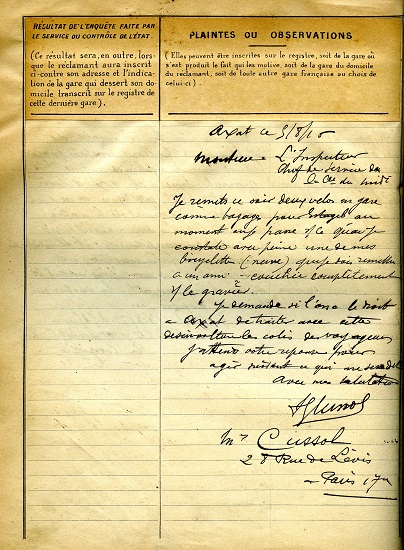 RÉSULTAT DE L'ENQUÊTE FAITE PAR
LE SERVICE DU CONTRÔLE DE L'ÉTAT.
(Ce résultat sera, en outre, lors-
que le réclamant aura inscrit
ci-contre son adresse et l'indica-
tion de la gare qui dessert son do-
micile transcrit sur le registre de
cette dernière gare).
PLAINTES OU OBSERVATIONS
(Elles peuvent être inscrites sur le registre, soit de la gare où
s'est produit le fait qui les motive, soit de la gare du domicile
du réclamant, soit de toute autre gare française au choix de
celui-ci).
Axat ce 5/8/
Monsieur L'Inspecteur
Chef de Service de
la Cie du Midi
Je remets ce soir deux vélos en gare
comme bagages pour au
moment
constate avec peine une de mes
bicyclette (neuve) que je dois remettre
a un ami - couchée complètement
le gravier
Je demande si l'on a le droit
a Axat de traiter avec cette
desinvolture les colis des voyageurs
J'attend votre reponse pour
agir suivant ce qui me
avec mes salutations
Mr Cussol
28 Rue de Lévis
- Paris 17